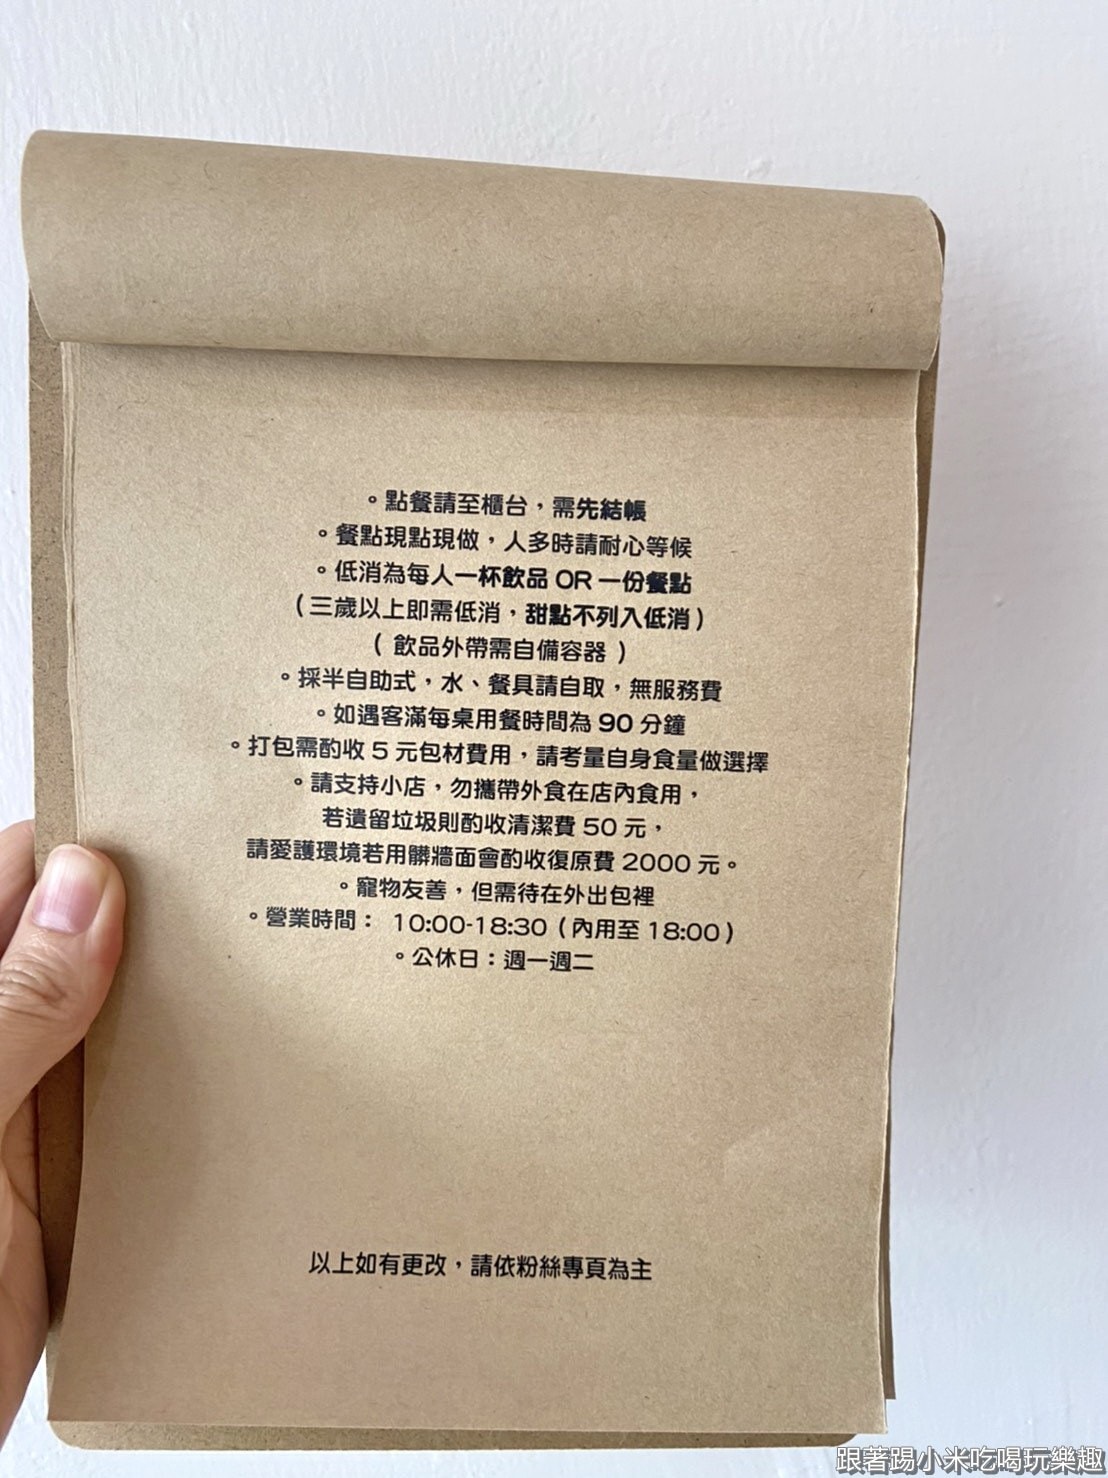 。點餐請至櫃台，需先結帳
。餐點現點現做，人多時請耐心等候
。低消為每人一杯飲品 OR 一份餐點
(三歲以上即需低消，甜點不列入低消)
( 飲品外帶需自備容器 )
。採半自助式，水、餐具請自取，無服務費
。如遇客滿每桌用餐時間為 90 分鐘
。打包需酌收 5 元包材費用，請考量自身食量做選擇
。請支持小店，勿攜帶外食在店內食用，
若遺留垃圾則酌收清潔費 50 元，
請愛護環境若用髒牆面會酌收復原費 2000 元。
。寵物友善，但需待在外出包裡
。營業時間： 10:00-18:30 (內用至 18:00)
。公休日：週一週二
以上如有更改，請依粉絲專頁為主
跟著踢小米吃喝玩樂趣